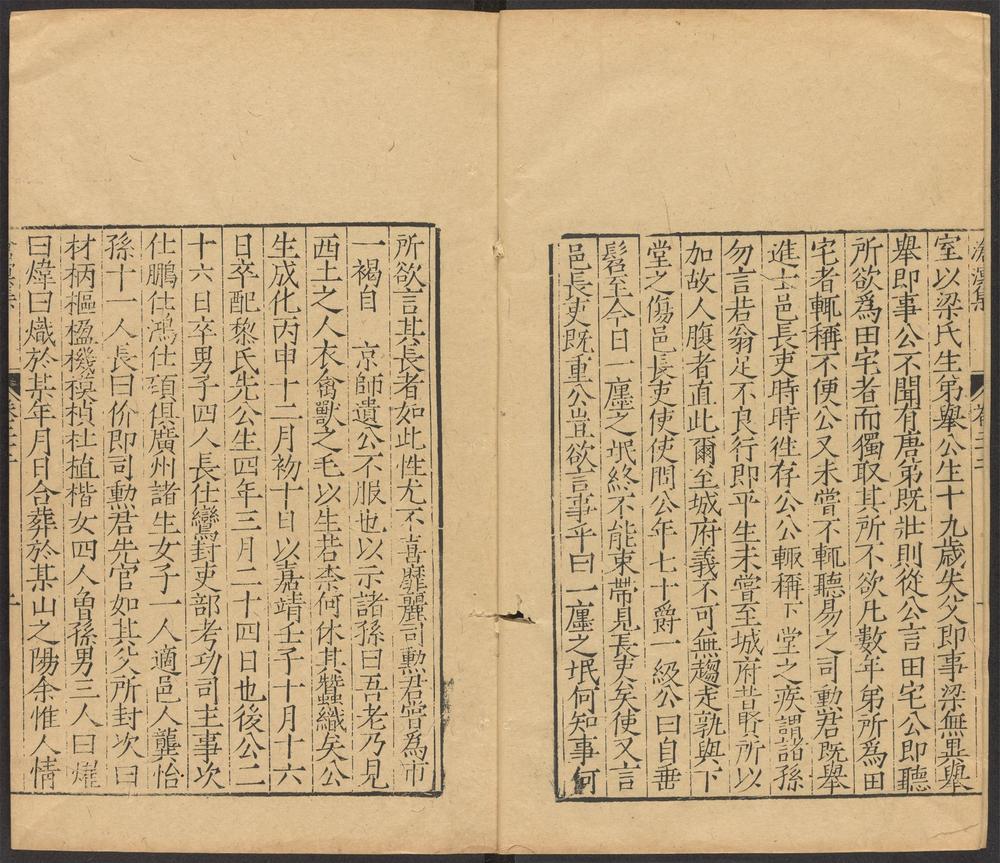 滄溟集
卷二十二
室以梁氏生弟舉公生十九歲失父即事梁無異舉
舉即事公不聞有唐弟既壯則從公言田宅公即聽
所欲爲田宅者而獨取其所不欲凡數年弟所爲田
宅者輒稱不便公又未嘗不輒聽易之司勳君既舉
進士邑長吏時時徃存公公輒稱下堂之疾謂諸孫
勿言若翁足不良行即平生未嘗至城府昔賢所以
加故人腹者直此爾至城府義不可無趨走孰與下
堂之傷邑長吏使使問公年七十爵一級公曰自垂
髫至今日一廛之氓終不能束帶見長吏矣使又言
邑長吏既重公豈欲言事乎曰一廛之氓何知事何
所欲言其長者如此性尤不喜靡麗司勳君嘗爲市
一褐自 京師遺公不服也以示諸孫曰吾老乃見
西土之人衣禽獸之毛以生若柰何休其蠶織矣公
生成化丙申十二月初十日以嘉靖壬子十月十六
日卒配黎氏先公生四年三月二十四日也後公二
十六日卒男子四人長仕鸞封吏部考功司主事次
仕鵬仕鴻仕頵俱廣州諸生女子一人適邑人龔怡
孫十一人長曰价即司勳君先官如其父所封次曰
材柄樞楹機模楨杜植楷女四人曾孫男三人曰㸌
曰煒曰熾於某年月日合葬於某山之陽余惟人情